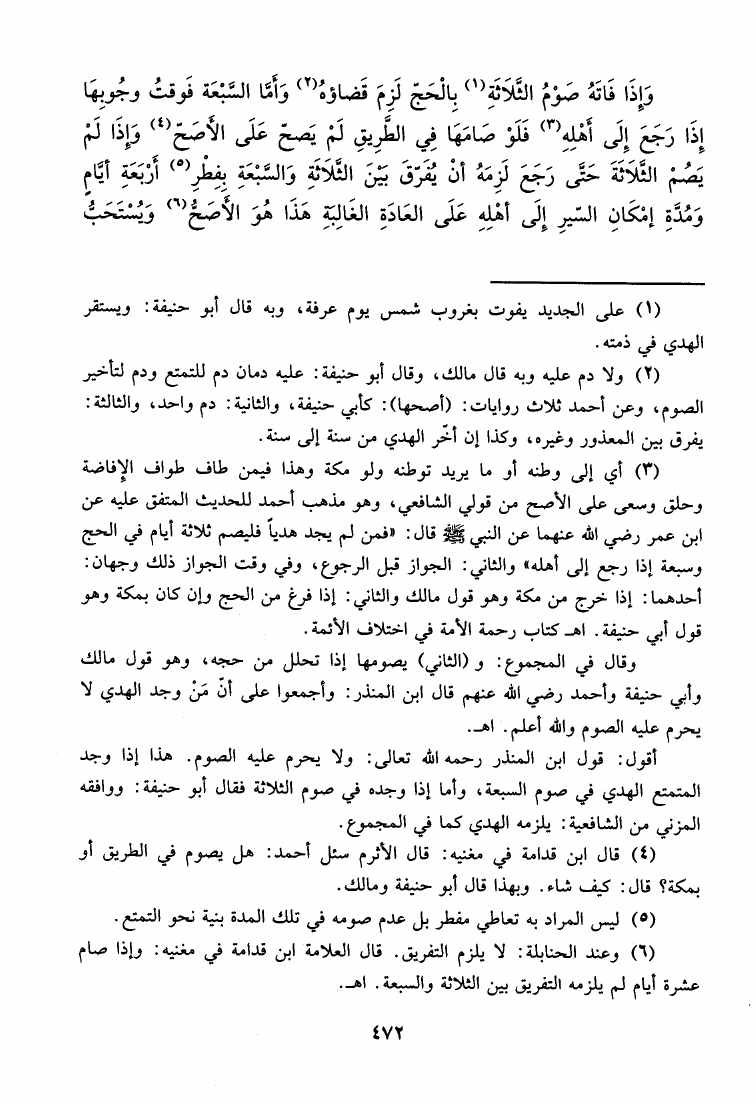 وَإِذَا فَاتَهُ صَوْمُ الثَّلَاثَةِ(١) بِالْحَجّ لَزِمَ قَضاؤهُ(٢) وَأَمَّا السَّبْعَة فَوقتُ وجُوبِهَا
إِذَا رَجَعَ إِلَى أَهْلِه(٣) فَلَوْ صَامَهَا فِي الطَّرِيقِ لَمْ يَصحّ عَلَى الأَصَحّ(٤) وَإِذَا لَمْ
يَصُمْ الثَّلَاثَةَ حَتَّى رَجَعَ لَزِمَهُ أنْ يُفَرّقَ بَيْنَ الثَّلَاثَةِ وَالسَّبْعَةِ بِفِطْرِ(٥) أَرْبَعَةِ أيَّامٍ
وَمُدَّةِ إمْكَانِ السّيرِ إِلَى أهْلِهِ عَلَى العَادَةِ الغَالِبَةِ هَذَا هُوَ الأَصَحُّ(٦) وَيُسْتَحَبُّ
(١) على الجديد يفوت بغروب شمس يوم عرفة، وبه قال أبو حنيفة: ويستقر
الهدي في ذمته.
(٢) ولا دم عليه وبه قال مالك، وقال أبو حنيفة: عليه دمان دم للتمتع ودم لتأخير
الصوم، وعن أحمد ثلاث روايات: (أصحها): كأبي حنيفة، والثانية: دم واحد، والثالثة:
يفرق بين المعذور وغيره، وكذا إن أخّر الهدي من سنة إلى سنة.
(٣) أي إلى وطنه أو ما يريد توطنه ولو مكة وهذا فيمن طاف طواف الإفاضة
وحلق وسعى على الأصح من قولي الشافعي، وهو مذهب أحمد للحديث المتفق عليه عن
ابن عمر رضي الله عنهما عن النبي ﷺ قال: «فمن لم يجد هدياً فليصم ثلاثة أيام في الحج
وسبعة إذا رجع إلى أهله» والثاني: الجواز قبل الرجوع، وفي وقت الجواز ذلك وجهان:
أحدهما: إذا خرج من مكة وهو قول مالك والثاني: إذا فرغ من الحج وإن كان بمكة وهو
قول أبي حنيفة. اهـ كتاب رحمة الأمة في اختلاف الأئمة.
وقال في المجموع: و (الثاني) يصومها إذا تحلل من حجه، وهو قول مالك
وأبي حنيفة وأحمد رضي الله عنهم قال ابن المنذر: وأجمعوا على أنّ مَنْ وجد الهدي لا
يحرم عليه الصوم والله أعلم. اهـ.
أقول: قول ابن المنذر رحمه الله تعالى: ولا يحرم عليه الصوم. هذا إذا وجد
المتمتع الهدي في صوم السبعة، وأما إذا وجده في صوم الثلاثة فقال أبو حنيفة: ووافقه
المزني من الشافعية: يلزمه الهدي كما في المجموع.
(٤) قال ابن قدامة في مغنيه: قال الأثرم سئل أحمد: هل يصوم في الطريق أو
بمكة؟ قال: كيف شاء. وبهذا قال أبو حنيفة ومالك.
(٥) ليس المراد به تعاطي مفطر بل عدم صومه في تلك المدة بنية نحو التمتع.
(٦) وعند الحنابلة: لا يلزم التفريق. قال العلامة ابن قدامة في مغنيه: وإذا صام
عشرة أيام لم يلزمه التفريق بين الثلاثة والسبعة. اهـ.
٤٧٢